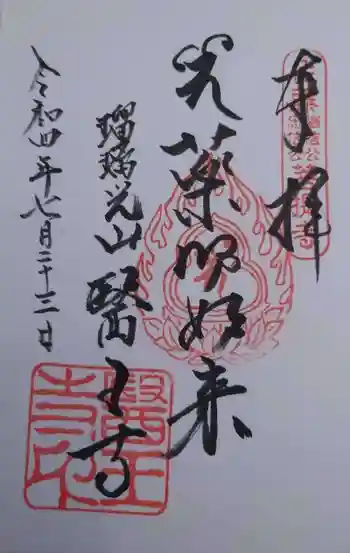 奉拝
光薬師如来
瑠璃光山醫王寺
令和四年七月二十三日
醫王寺印